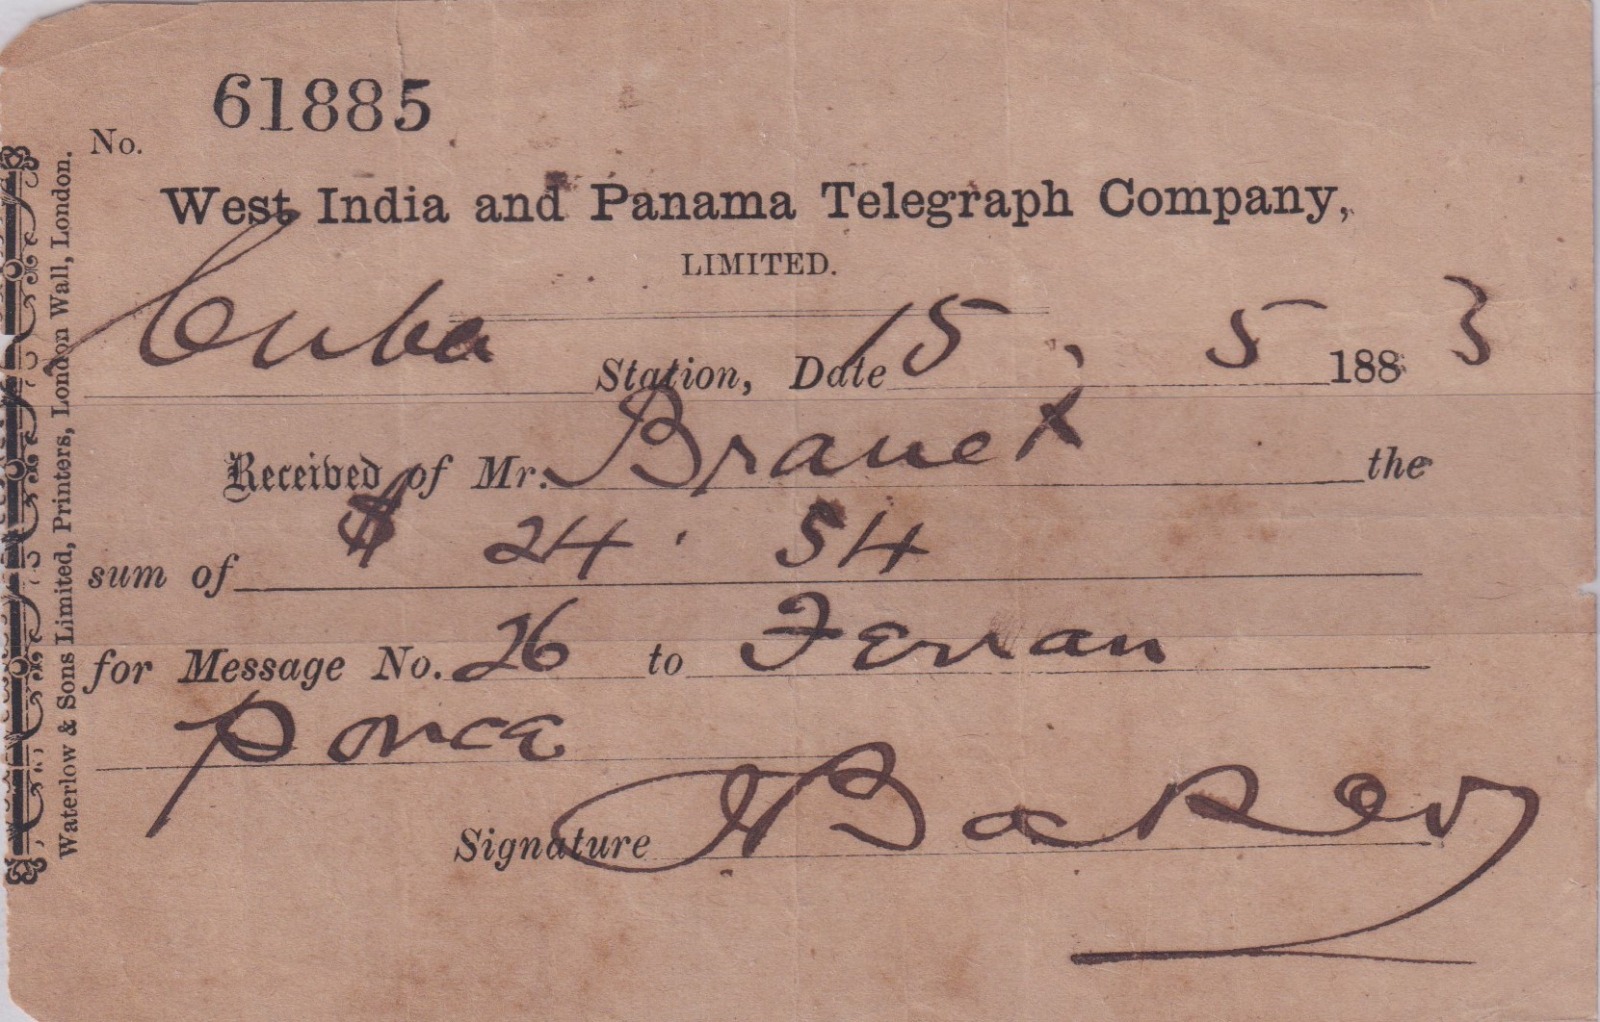 61885
No.
West India and Panama Telegraph Company,
LIMITED.
Cuba Station, Date 15. 5 188 3
Received of Mr. the
sum of $ 24. 54
for Message No. 26 to Ferran
Ponce
Signature Baker
Waterlow & Sons Limited, Printers, London Wall, London.